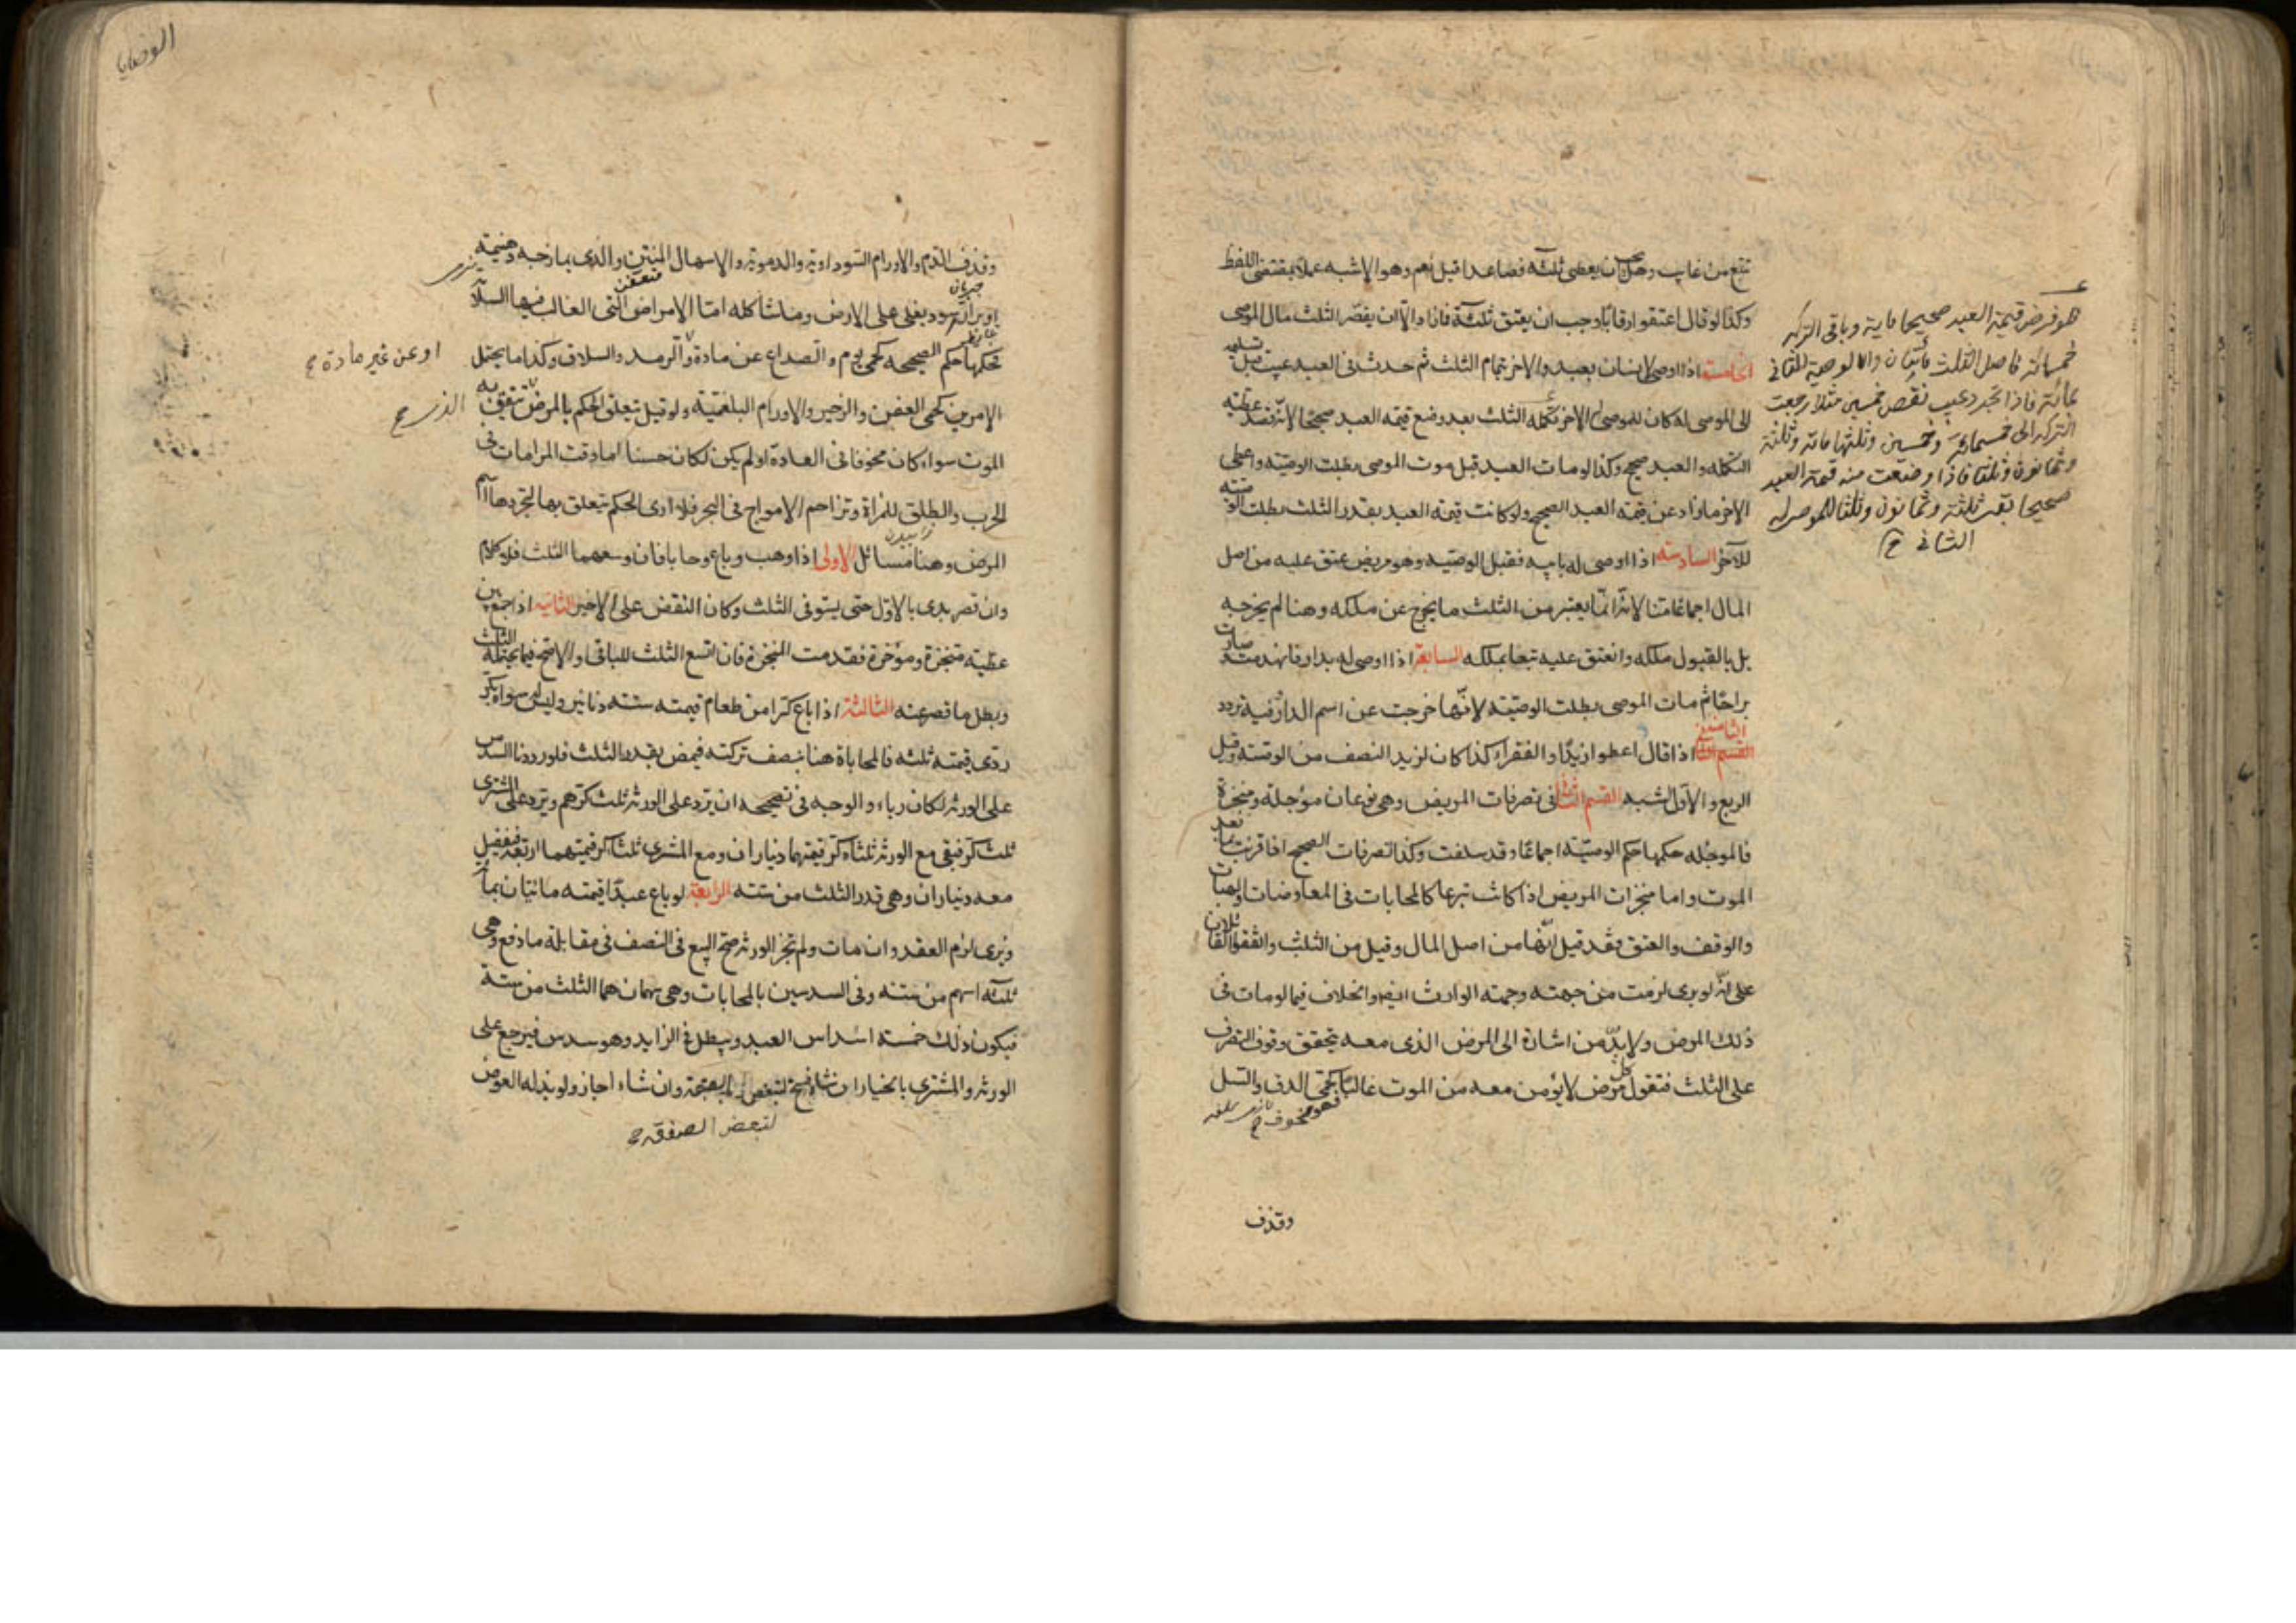 تتبع من غاب وهل يجب ان يعطى ثلثه فصاعدا قيل نعم وهو الاشبه عملا بمقتضى اللفظ
وكذا لو قال اعتقوا رقابا وجب ان يعتق ثلثة فما زاد الا ان يقصر الثلث مال الموصى
الخامسة اذا اوصى لانسان بعبد والاخر بتمام الثلث ثم حدث فى العبد عيب قبل تسليمه
الى الموصى له كان للموصى الاخر تكملة الثلث بعد وضع قيمة العبد صحيحا لانه قصد عطية
التكملة والعبد صحيح وكذا لو مات العبد قبل موت الموصى بطلت الوصية واعطى
الاخر ما زاد عن قيمة العبد الصحيح ولو كانت قيمة العبد بقدر الثلث بطلت الوصية
للاخر السادسة اذا اوصى له بابيه فقبل الوصية وهو مريض عتق عليه من اصل
المال اجماعا منا لانه انما يعتبر من الثلث ما يخرج عن ملكه وهنا لم يخرجه
بل بالقبول ملكه وانعتق عليه تبعا بملكه السابعة اذا اوصى له بدار فانهدمت وصارت
براحا ثم مات الموصى بطلت الوصية لانها خرجت عن اسم الدار وفيه تردد
الثامنة اذا قال اعطوا زيدا والفقراء كذا كان لزيد النصف من الوصية وقيل
الربع والاول اشبه القسم الثانى فى تصرفات المريض وهى نوعان مؤجلة ومنجزة
فالموجله حكمها حكم الوصية اجماعا وقد سلفت وكذا تصرفات الصحيح اذا قرنت بما بعد
الموت واما منجزات المريض اذا كانت تبرعا كالمحابات فى المعاوضات والهبات
والوقف والعتق فقد قيل انها من اصل المال وقيل من الثلث واتفق القائلان
على انه لو برى لزمت من جهته وجهة الوارث ايضا والخلاف فيما لو مات فى
ذلك المرض ولا بد من اشارة الى المرض الذى معه يتحقق وقوف التصرف
على الثلث فنقول كل مرض لا يؤمن معه من الموت غالبا فهو مخوف كحمى الدق والسل
وقذف
هو فرض قيمة العبد صحيحا ماية وباقى التركه
خمسمائة فاصل الثلث مأتان والوصية للثانى
بمائة فاذا تجدد عيب نقص خمسين مثلا رجعت
التركه الى خمسمائة وخمسين وثلثها مائة وثلثة
وثمانون وثلث فاذا وضعت منه قيمة العبد
صحيحا بقى ثلثة وثمانون وثلث للموصى له
الثانى
الوصايا
وقذف الدم والاورام السوداوية والدموية والاسهال المنتن والذى يمازجه دهنية
او براز اسود يغلى على الارض وما شاكله اما الامراض التى الغالب فيها السلامة
فحكمها حكم الصحيحه كحمى يوم والصداع عن مادة والرمد والسلاق وكذا ما يحتمل
الامرين كحمى العفن والزحير والاورام البلغمية ولو قيل يتعلق الحكم بالمرض يتفق به
الموت سواء كان مخوفا فى العادة او لم يكن لكان حسنا اما وقت المرامات فى
الحرب والطلق للمراة وتزاحم الامواج فى البحر فلا ارى الحكم يتعلق بها لتجردها
المرض وهنا مسائل الاولى اذا وهب وباع وحابا فان وسعهما الثلث فلا كلام
وان قصر بدى بالاول حتى يستوفى الثلث وكان النقص على الاخير الثانية اذا جمع بين
عطية منجزة ومؤخرة فقدمت المنجزة فان اتسع الثلث للباقى والا صح فيما يحتمله الثلث
وبطل ما قصر عنه الثالثة اذا باع كرا من طعام قيمته ستة دنانير وليس سواه بكر
ردى قيمته ثلثه فالمحاباة هنا بنصف تركته فيمض بقدر الثلث فلو رددنا السدس
على الورثة لكان رباء والوجه فى تصحيحه ان يرد على الورثة ثلث كرهم ويرد على المشترى
ثلث كره فبقى مع الورثة ثلثا كر قيمتهما ديناران ومع المشترى ثلثا كر قيمتهما اربعة فيفضل
معه ديناران وهى قدر الثلث من ستة الرابعة لو باع عبدا قيمته مائتان بمائة
وبرى لزم العقد وان مات ولم تجز الورثة صح البيع فى النصف فى مقابلة ما دفع وهى
ثلثه اسهم من ستة وفى السدسين بالمحابات وهى سهمان هما الثلث من ستة
فيكون ذلك خمسة اسداس العبد ويبطل فى الزايد وهو سدس فيرجع على
الورثة والمشترى بالخيار ان شاء فسخ وان شاء اجاز ولو بذله العوض
لتبعض الصفقة
او عن غير مادة